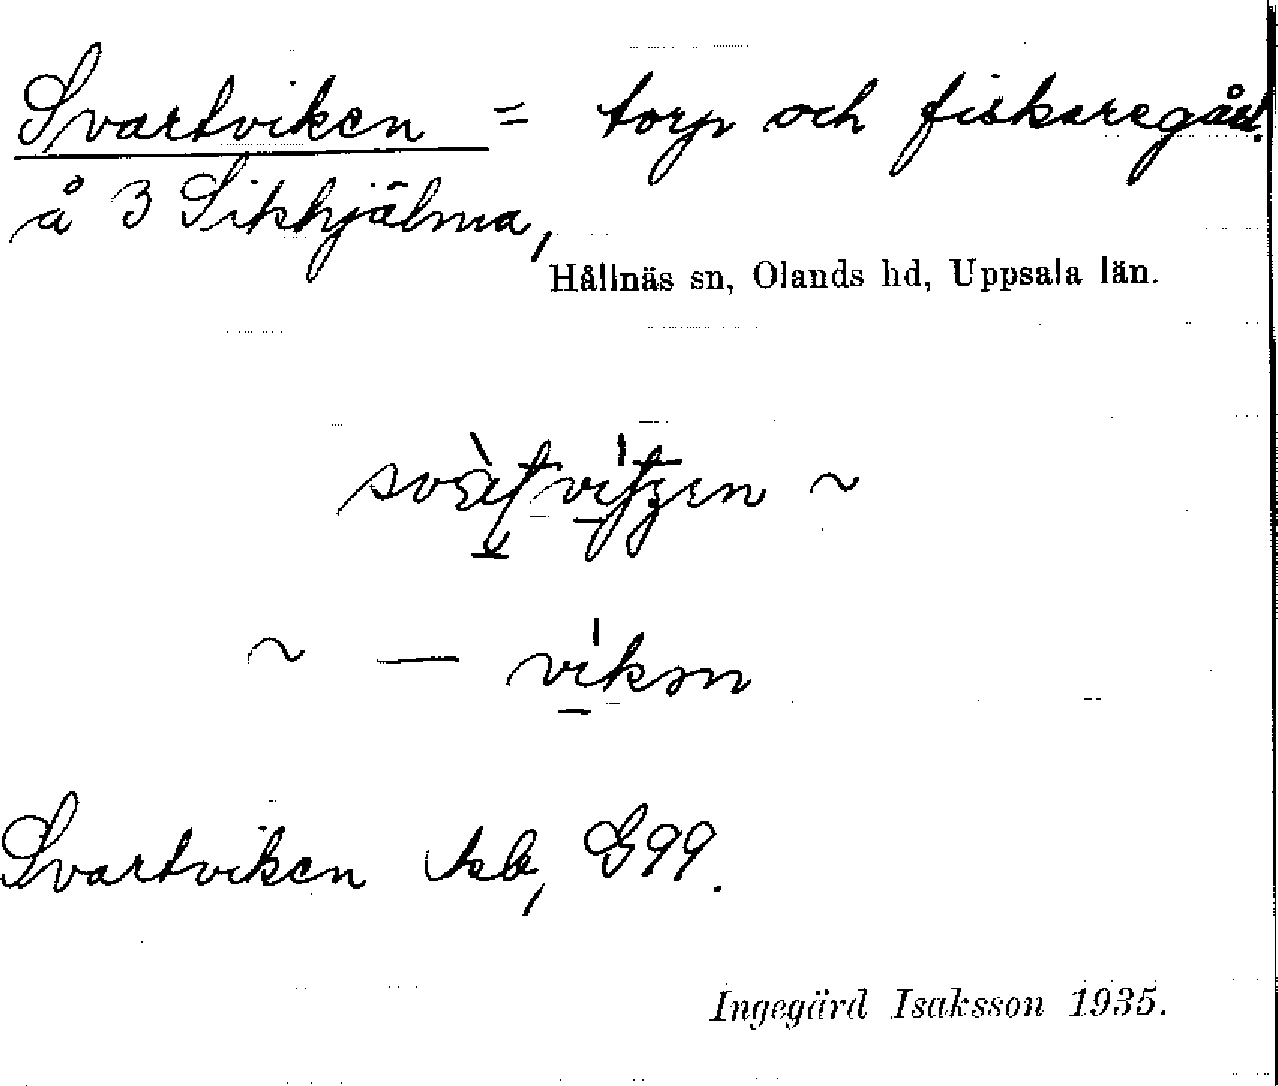 Svartviken = torp och fiskaregård.
å 3 Sikhjälma,
Hållnäs sn, Olands hd, Uppsala län.
~
~ —
Svartviken kb, G99.
Ingegärd Isaksson 1935.